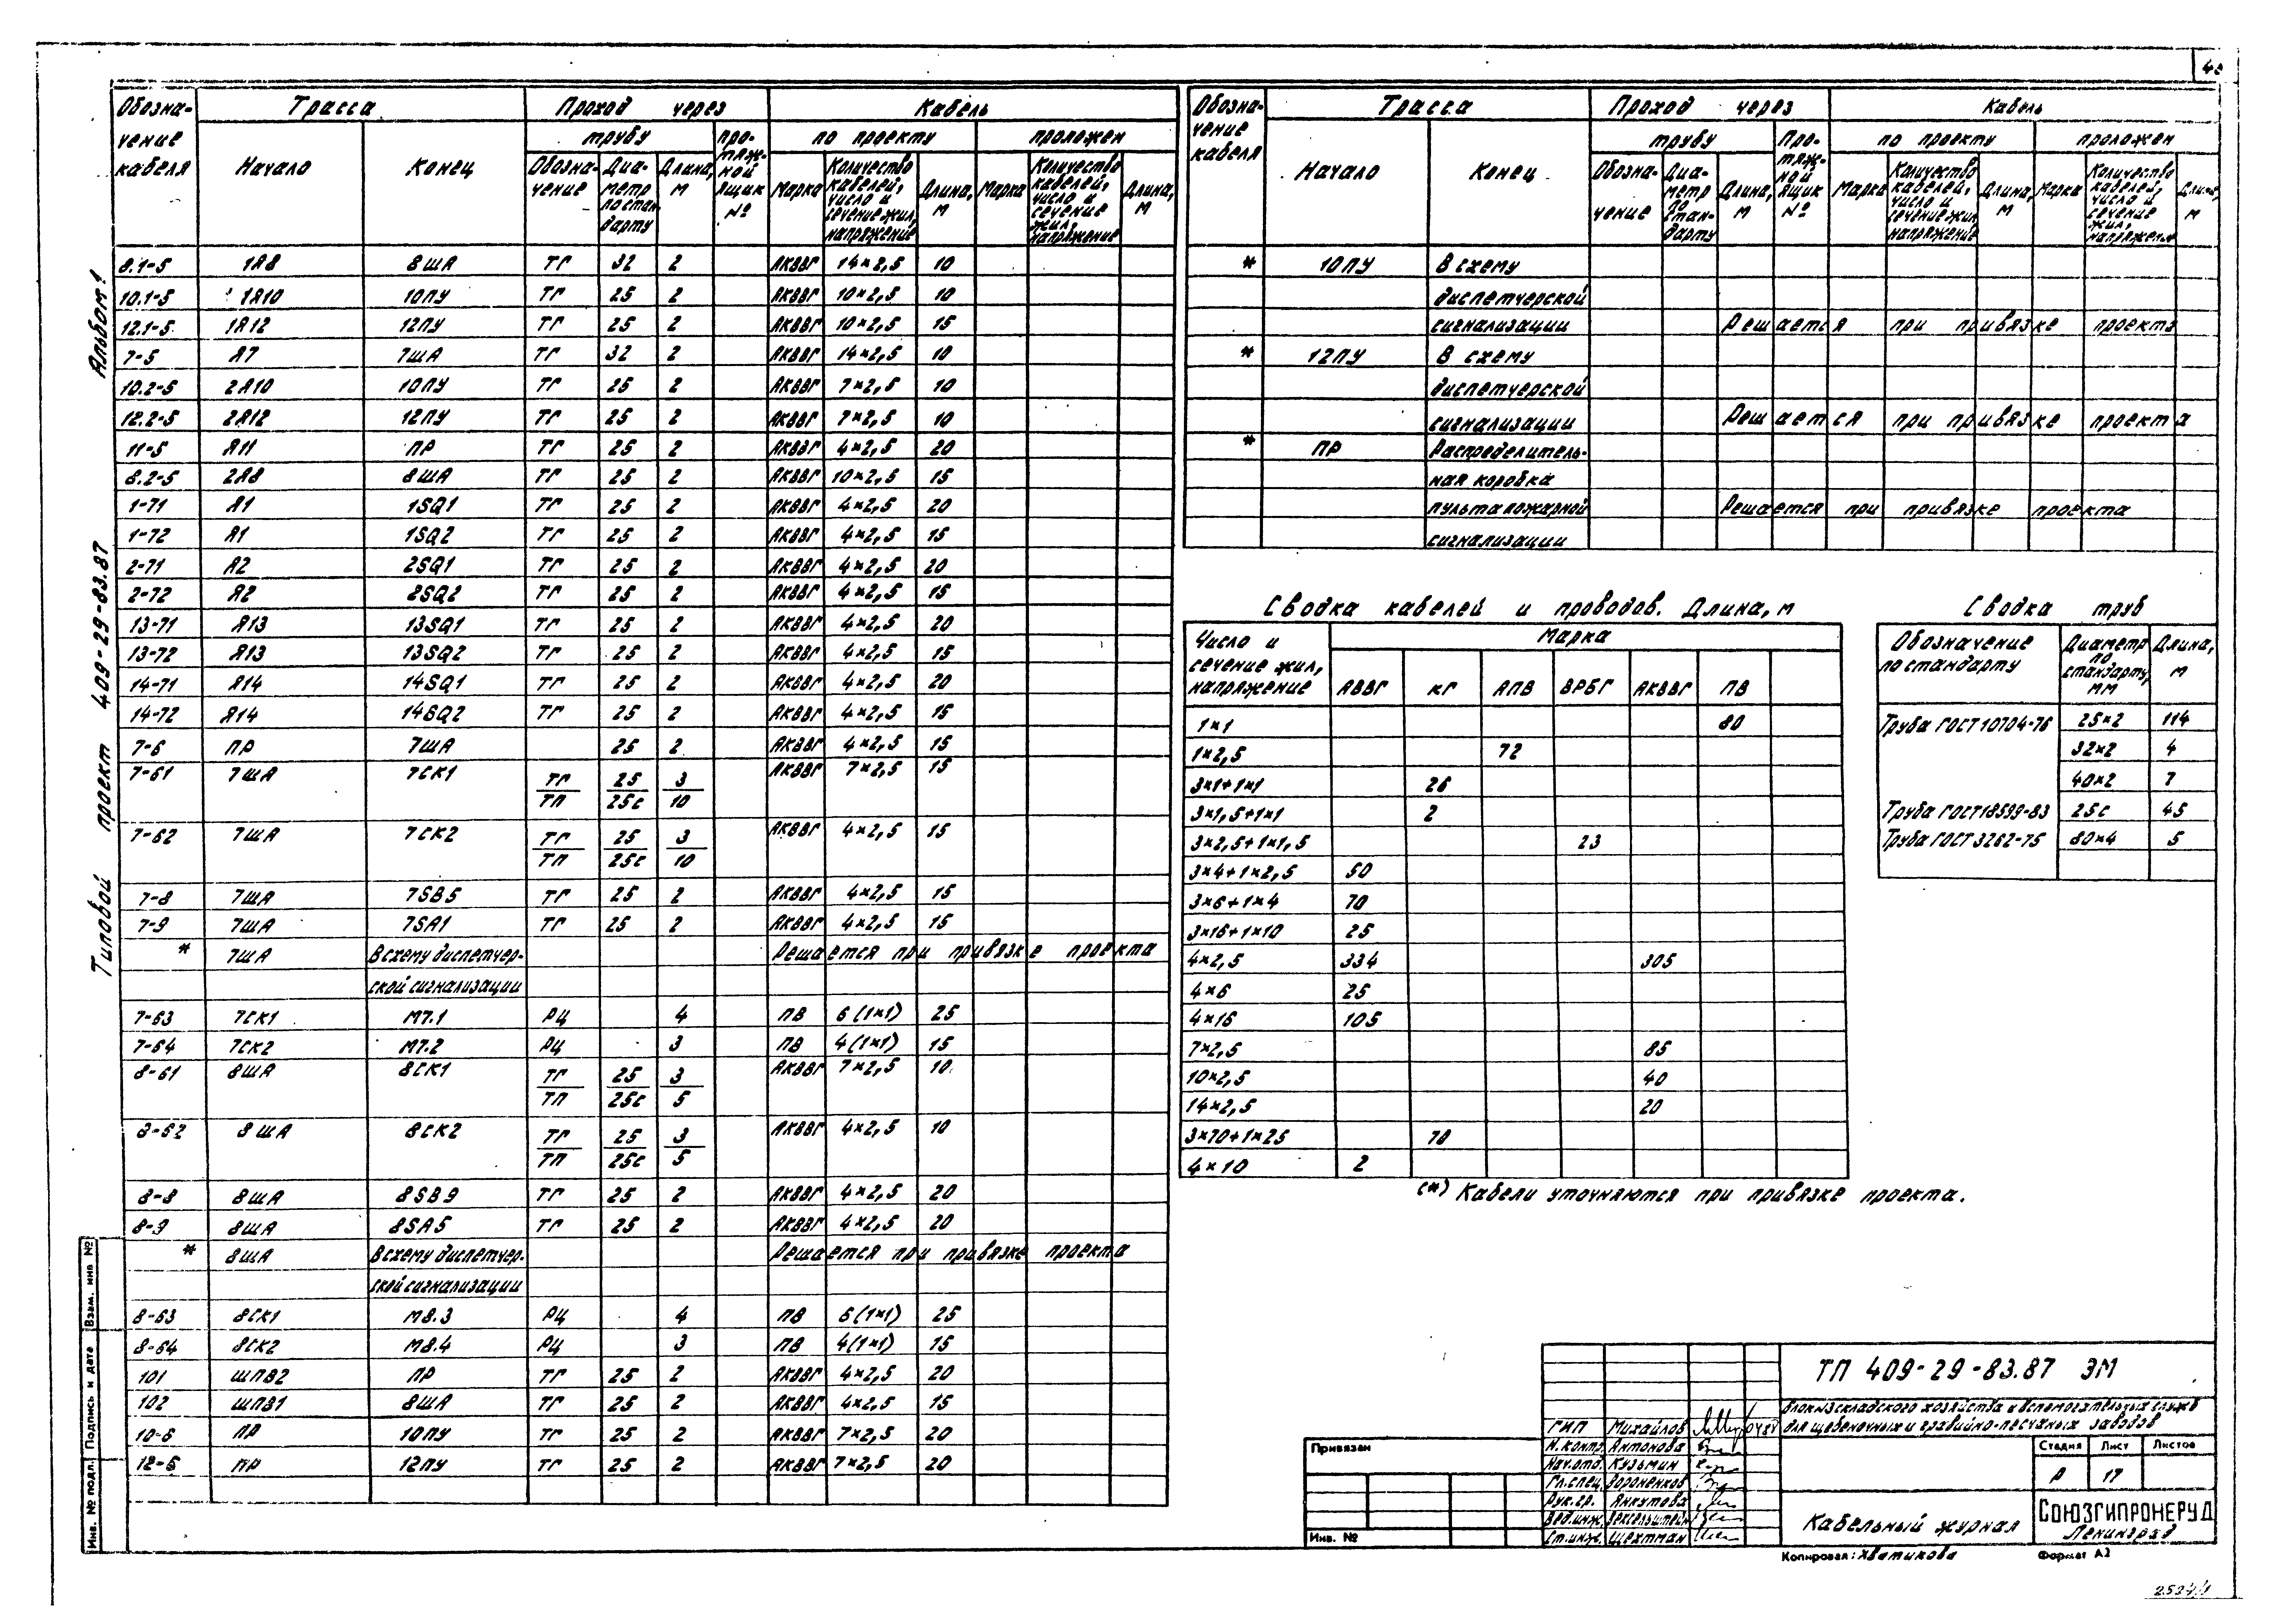 Альбом 1
Типовой проект 409-29-83.87
Обозна-чение кабеля | Трасса | Проход через | Кабель
трубу | про-тяж-ной ящик № | по проекту | проложен
Начало | Конец | Обозна-чение | Диа-метр по стан-дарту | Длина, м | Марка | Количество кабелей, число и сечение жил, напряжение | Длина, м | Марка | Количество кабелей, число и сечение жил, напряжение | Длина, м
8.1-5 1Я8 8ША ТГ 32 2 АКВВГ 14×2,5 10
10.1-5 1Я10 10ПУ ТГ 25 2 АКВВГ 10×2,5 10
12.1-5 1Я12 12ПУ ТГ 25 2 АКВВГ 10×2,5 15
7-5 Я7 7ША ТГ 32 2 АКВВГ 14×2,5 10
10.2-5 2Я10 10ПУ ТГ 25 2 АКВВГ 7×2,5 10
12.2-5 2Я12 12ПУ ТГ 25 2 АКВВГ 7×2,5 10
11-5 Я11 ПР ТГ 25 2 АКВВГ 4×2,5 20
8.2-5 2Я8 8ША ТГ 25 2 АКВВГ 10×2,5 15
1-71 Я1 1SQ1 ТГ 25 2 АКВВГ 4×2,5 20
1-72 Я1 1SQ2 ТГ 25 2 АКВВГ 4×2,5 15
2-71 Я2 2SQ1 ТГ 25 2 АКВВГ 4×2,5 20
2-72 Я2 2SQ2 ТГ 25 2 АКВВГ 4×2,5 15
13-71 Я13 13SQ1 ТГ 25 2 АКВВГ 4×2,5 20
13-72 Я13 13SQ2 ТГ 25 2 АКВВГ 4×2,5 15
14-71 Я14 14SQ1 ТГ 25 2 АКВВГ 4×2,5 20
14-72 Я14 14SQ2 ТГ 25 2 АКВВГ 4×2,5 15
7-6 ПР 7ША 25 2 АКВВГ 4×2,5 15
7-61 7ША 7СК1 ТГ 25 3 АКВВГ 7×2,5 15
ТП 25С 10
7-62 7ША 7СК2 ТГ 25 3 АКВВГ 4×2,5 15
ТП 25С 10
7-8 7ША 7SB5 ТГ 25 2 АКВВГ 4×2,5 15
7-9 7ША 7SA1 ТГ 25 2 АКВВГ 4×2,5 15
* 7ША В схему диспетчер- Решается при привязке проекта
ской сигнализации
7-63 7СК1 М7.1 РЦ 4 ПВ 6(1×1) 25
7-64 7СК2 М7.2 РЦ 3 ПВ 4(1×1) 15
8-61 8ША 8СК1 ТГ 25 3 АКВВГ 7×2,5 10
ТП 25С 5
8-62 8ША 8СК2 ТГ 25 3 АКВВГ 4×2,5 10
ТП 25С 5
8-8 8ША 8SB9 ТГ 25 2 АКВВГ 4×2,5 20
8-9 8ША 8SA5 ТГ 25 2 АКВВГ 4×2,5 20
* 8ША В схему диспетчер- Решается при привязке проекта
ской сигнализации
8-63 8СК1 М8.3 РЦ 4 ПВ 6(1×1) 25
8-64 8СК2 М8.4 РЦ 3 ПВ 4(1×1) 15
101 ШПВ2 ПР ТГ 25 2 АКВВГ 4×2,5 20
102 ШПВ1 8ША ТГ 25 2 АКВВГ 4×2,5 15
10-6 ПР 10ПУ ТГ 25 2 АКВВГ 7×2,5 20
12-6 ПР 12ПУ ТГ 25 2 АКВВГ 7×2,5 20
Обозна-чение кабеля | Трасса | Проход через | Кабель
трубу | Про-тяж-ной ящик № | по проекту | проложен
Начало | Конец | Обозна-чение | Диа-метр по стан-дарту | Длина, м | Марка | Количество кабелей, число и сечение жил, напряжение | Длина, м | Марка | Количество кабелей, число и сечение жил, напряжение | Длина, м
* 10ПУ В схему
диспетчерской
сигнализации Решается при привязке проекта
* 12ПУ В схему
диспетчерской
сигнализации Решается при привязке проекта
* ПР Распределитель-
ная коробка
пульта пожарной Решается при привязке проекта
сигнализации
Сводка кабелей и проводов. Длина, м
Число и сечение жил, напряжение | Марка
АВВГ КГ АПВ ВРБГ АКВВГ ПВ
1×1 80
1×2,5 72
3×1+1×1 26
3×1,5+1×1 2
3×2,5+1×1,5 23
3×4+1×2,5 50
3×6+1×4 70
3×16+1×10 25
4×2,5 334 305
4×6 25
4×16 105
7×2,5 85
10×2,5 40
14×2,5 20
3×70+1×25 70
4×10 2
(*) Кабели уточняются при привязке проекта.
Сводка труб
Обозначение по стандарту | Диаметр по стандарту, мм | Длина, м
Труба ГОСТ 10704-76 25×2 114
32×2 4
40×2 7
Труба ГОСТ 18599-83 25С 45
Труба ГОСТ 3262-75 80×4 5
ТП 409-29-83.87 ЭМ
Блокы складского хозяйства и вспомогательных служб
для щебеночных и гравийно-песчаных заводов
ГИП Михайлов
Н.контр. Антонова
Нач.отд. Кузьмин
Гл.спец. Вороненков
Рук.гр. Янкутова
Вед.инж. Зексельштейн
Ст.инж. Шехтман
Стадия Лист Листов
Р 17
Кабельный журнал
СОЮЗГИПРОНЕРУД
Ленинград
Привязан
Инв. №
Копировал: Хватикова
Формат А2
Инв. № подл. Подпись и дата Взам. инв №